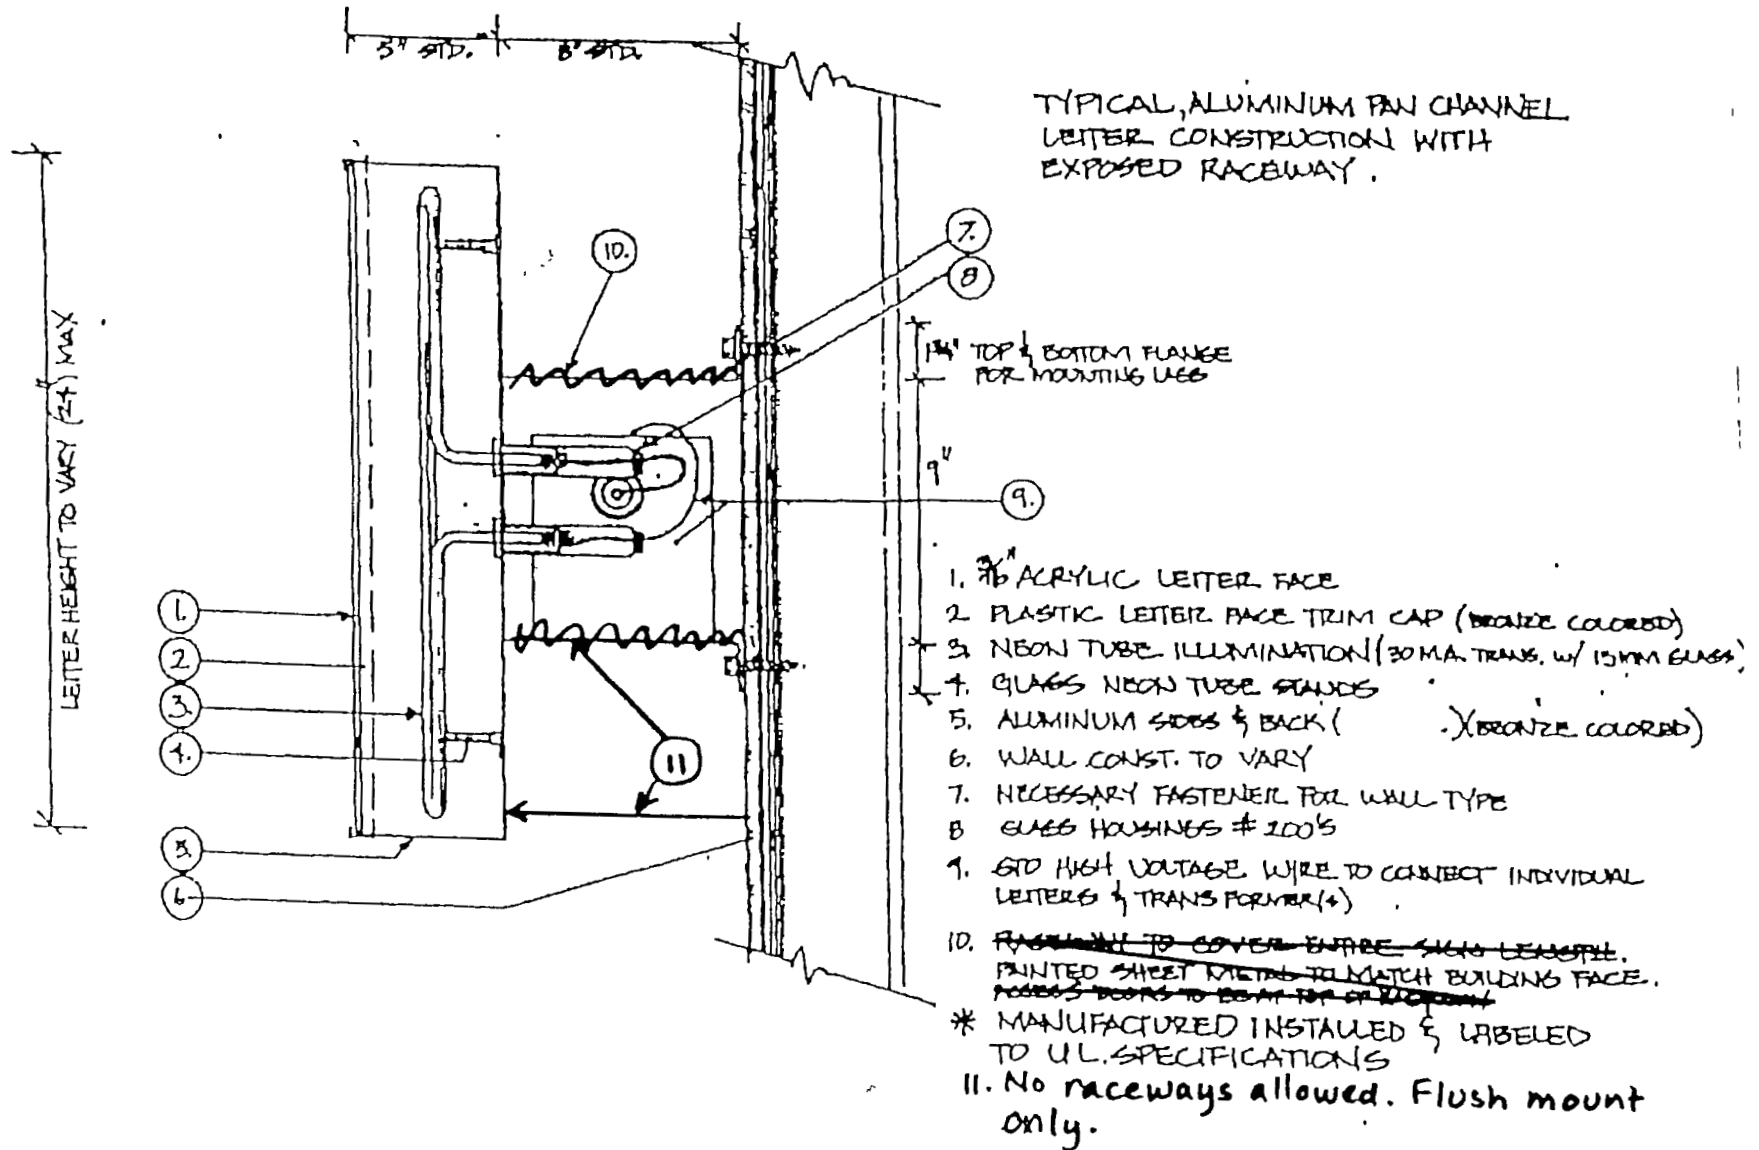 5" STD.
8" STD.
TYPICAL, ALUMINUM PAN CHANNEL
LETTER CONSTRUCTION WITH
EXPOSED RACEWAY.
10.
7.
8
LETTER HEIGHT TO VARY (24) MAX
1¾" TOP & BOTTOM FLANGE
FOR MOUNTING USES
9"
9.
1.
2
3.
4.
11
5.
6
1. 3/16" ACRYLIC LETTER FACE
2 PLASTIC LETTER FACE TRIM CAP (BRONZE COLORED)
3. NEON TUBE ILLUMINATION (30 MA. TRANS. W/ 15MM GLASS)
4. GLASS NEON TUBE STANDS
5. ALUMINUM SIDES & BACK ( .)(BRONZE COLORED)
6. WALL CONST. TO VARY
7. NECESSARY FASTENER FOR WALL TYPE
8 GLASS HOUSINGS # 200'S
9. GTO HIGH VOLTAGE WIRE TO CONNECT INDIVIDUAL
LETTERS & TRANSFORMER(S)
10. RACEWAY TO COVER ENTIRE SIGN LENGTH.
PAINTED SHEET METAL TO MATCH BUILDING FACE.
ACCESS DOORS TO BE AT TOP OF RACEWAY
* MANUFACTURED INSTALLED & LABELED
TO U.L. SPECIFICATIONS
11. No raceways allowed. Flush mount
only.